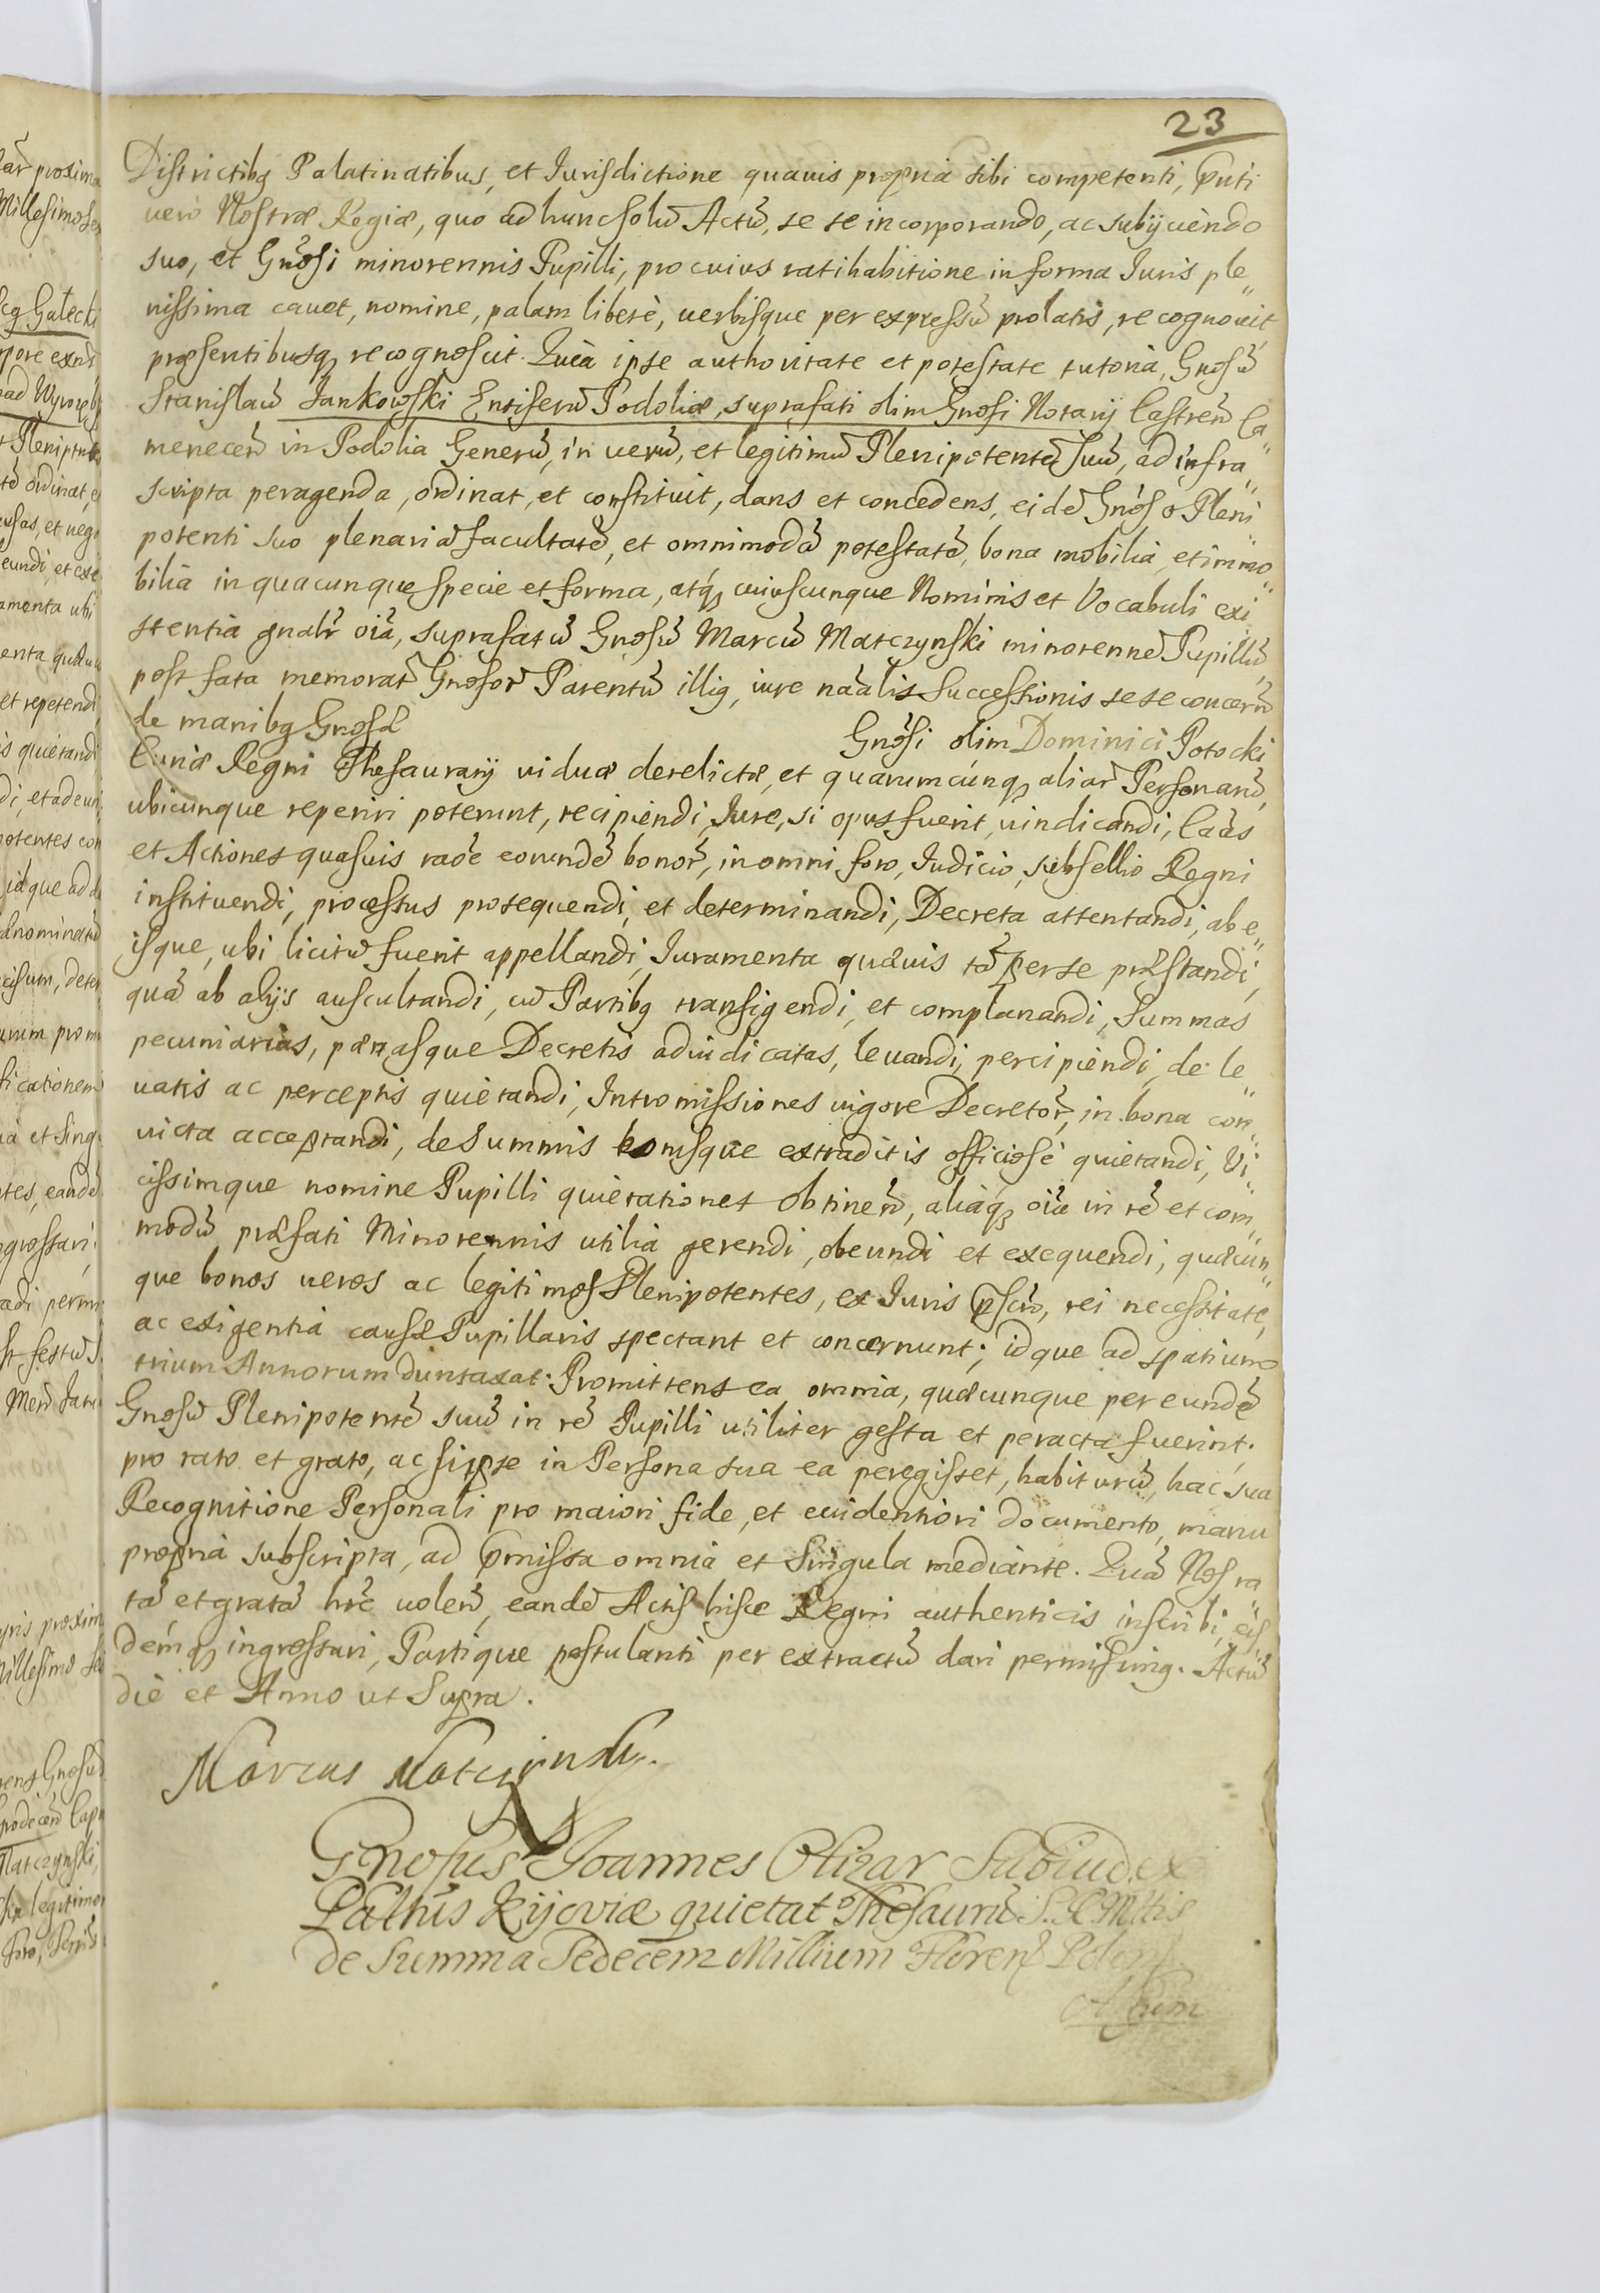 23
Districtibq Palatinatibus, et Iurisdictione quauis propria sibi competenti, pñti
uerò Nostræ Regiæ, quo ad hunc solũ Actũ, se se incorporando, ac subijciendo
suo, et Gñosi minorennis Pupilli, pro cuius ratihabitione in forma Iuris ple„
nissima cauet, nomine, palam liberè, uerbisque per expressũ prolatis, recognouit
præsentibusq; recognoscit. Quia ipse authoritate et potestate tutoria, Gnosũ
Stanislaũ Iankowski Ensiferũ Podoliæ, suprafati olim Gnosi Notarij Castreñ Ca„
meneceñ in Podolia Generũ, in uerũ, et legitimũ Plenipotentẽ Suũ, ad infra„
scripta peragenda, ordinat, et constituit, dans et concedens, eidẽ Gnoso Pleni„
potenti suo plenariã facultatẽ, et omnimodã potestatẽ, bona mobilia, et immo„
bilia in quacunque specie et forma, atq; cuiuscunque Nominis et Vocabuli exi„
stentia gnalr̃ oĩa, suprafatũ Gnosũ Marcũ Matczynski minorennẽ Pupillũ,
post fata memorat̃ Gnosor̃ Parentũ illiq, iure naãlis Successionis sese conceñ
de manibq Gnosæ Gñosi olim Dominici Potocki
Curiæ Regni Thesaurarij viduæ derelictæ, et quarumcunq; aliar̃ Personarũ,
ubicunque reperiri poterunt, recipiendi, Iure, si opus fuerit, uindicandi, Caãs
et Actiones quasuis raõe eorundẽ bonor̃, in omni foro, Iudicio, subsellio Regni
instituendi, processus prosequendi, et determinandi, Decreta attentandi, ab e„
isque, ubi licitũ fuerit appellandi, Iuramenta quæuis tã per se præstandi,
quã ab alijs auscultandi, cũ Partibq transigendi, et complanandi, Summas
pecuniarias, pænasque Decretis adiudicatas, leuandi, percipiendi, de le„
uatis ac perceptis quietandi, Intromissiones uigore Decretor̃, in bona con„
uicta acceptandi, de Summis bonisque extraditis officiosè quietandi, Vi„
cissimque nomine Pupilli quietationes obtineñ, aliaq; oĩa in rẽ et com„
modũ præfati Minorennis utilia gerendi, obeundi et exequendi, quæcun„
que bonos ueros ac legitimos Plenipotentes, ex Iuris pscro, rei necessitate,
ac exigentia causæ Pupillaris spectant et concernunt; idque ad spatium
trium Annorum duntaxat. Promittens ea omnia, quæcunque per eundẽ
Gnosũ Plenipotentẽ suũ in rẽ Pupilli utiliter gesta et peracta fuerint.
pro rato et grato, ac si ipse in Persona sua ea peregisset, habiturũ, hac sua
Recognitione Personali pro maiori fide, et euidentiori documento, manu
propria subscripta, ad pmissa omnia et Singula mediante. Quã Nos ra„
tã et gratã hr̃e uoleñ, eandẽ Actis hisce Regni authenticis inscribi, eis„
demq; ingrossari, Partique postulanti per extractũ dari permisimq. Actũ
die et Anno ut Supra.
Marcus Matczynsky.
Gnosus Joannes Olizar Subiudex
Palttus Kijoviæ quietat Thesaurũ S. R. Mttis
de Summa Sedecem Millium Floren Polon